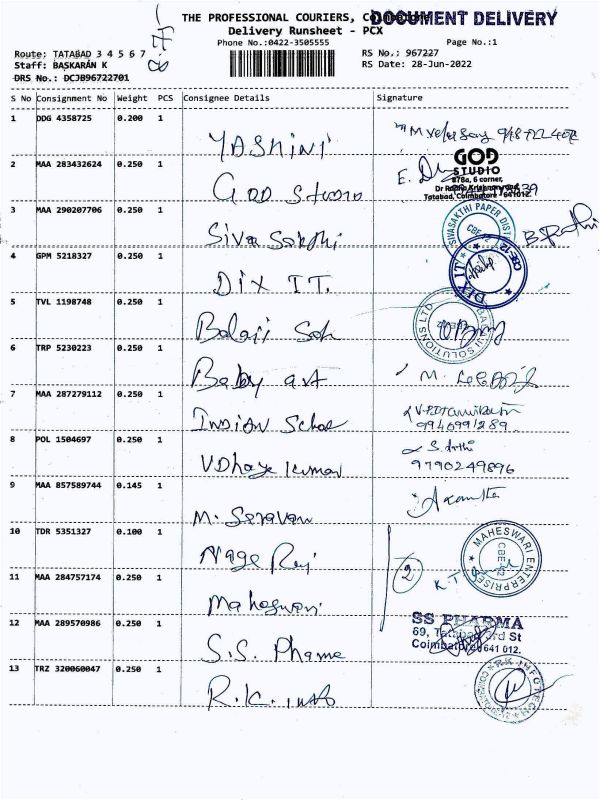 THE PROFESSIONAL COURIERS, Coimbatore
DOCUMENT DELIVERY
Delivery Runsheet - PCX
Phone No.:0422-3505555
Page No.:1
Route: TATABAD 3 4 5 6 7
RS No.: 967227
Staff: BASKARAN K
RS Date: 28-Jun-2022
DRS No.: DCJB96722701
S No Consignment No Weight PCS Consignee Details Signature
1 DDG 4358725 0.200 1
YASHINI
2 MAA 283432624 0.250 1
GOD STUDIO
#78a, 6 corner,
Dr Radha Krishnan road,
Tatabad, Coimbatore - 641012.
God Studio
3 MAA 290207706 0.250 1
SIVASAKTHI PAPER DIST
CBE-12
Siva Sakthi
4 GPM 5218327 0.250 1
DIX IT
CBE-12
DIX IT.
5 TVL 1198748 0.250 1
BALAJI SOLUTIONS LTD
Balaji Soh
6 TRP 5230223 0.250 1
Baby art
7 MAA 287279112 0.250 1
INDIAN School
9940991289
8 POL 1504697 0.250 1
S. Arthi
9790249896
VDhaya kumar
9 MAA 857589744 0.145 1
M. Saravan
10 TDR 5351327 0.100 1
MAHESWARI ENTERPRISES
CBE-12
Nage Raj
2
K.T
11 MAA 284757174 0.250 1
Maheswari
12 MAA 289570986 0.250 1
SS PHARMA
69, Tatabad 3rd St
Coimbatore 641 012.
S.S. Pharma
13 TRZ 320060047 0.250 1
RK INFOTECH
R.K. info